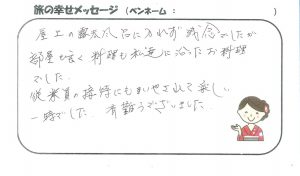 旅の幸せメッセージ（ペンネーム：　　　　）
屋上の露天風呂に入れず残念でしたが
部屋も広く料理も私達に合ったお料理
でした。
従業員の接待にもいやされて楽しい
一時でした。有難うございました。